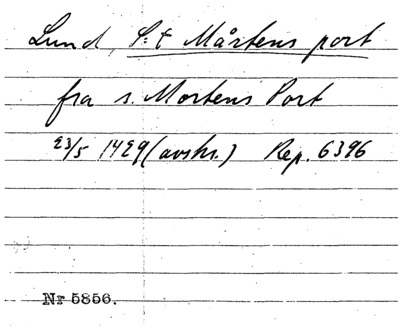 Lund, S:t Mårtens port
fra s. Mortens Port
23/5 1429 (avskr.) Rep. 6396
Nr 5856.